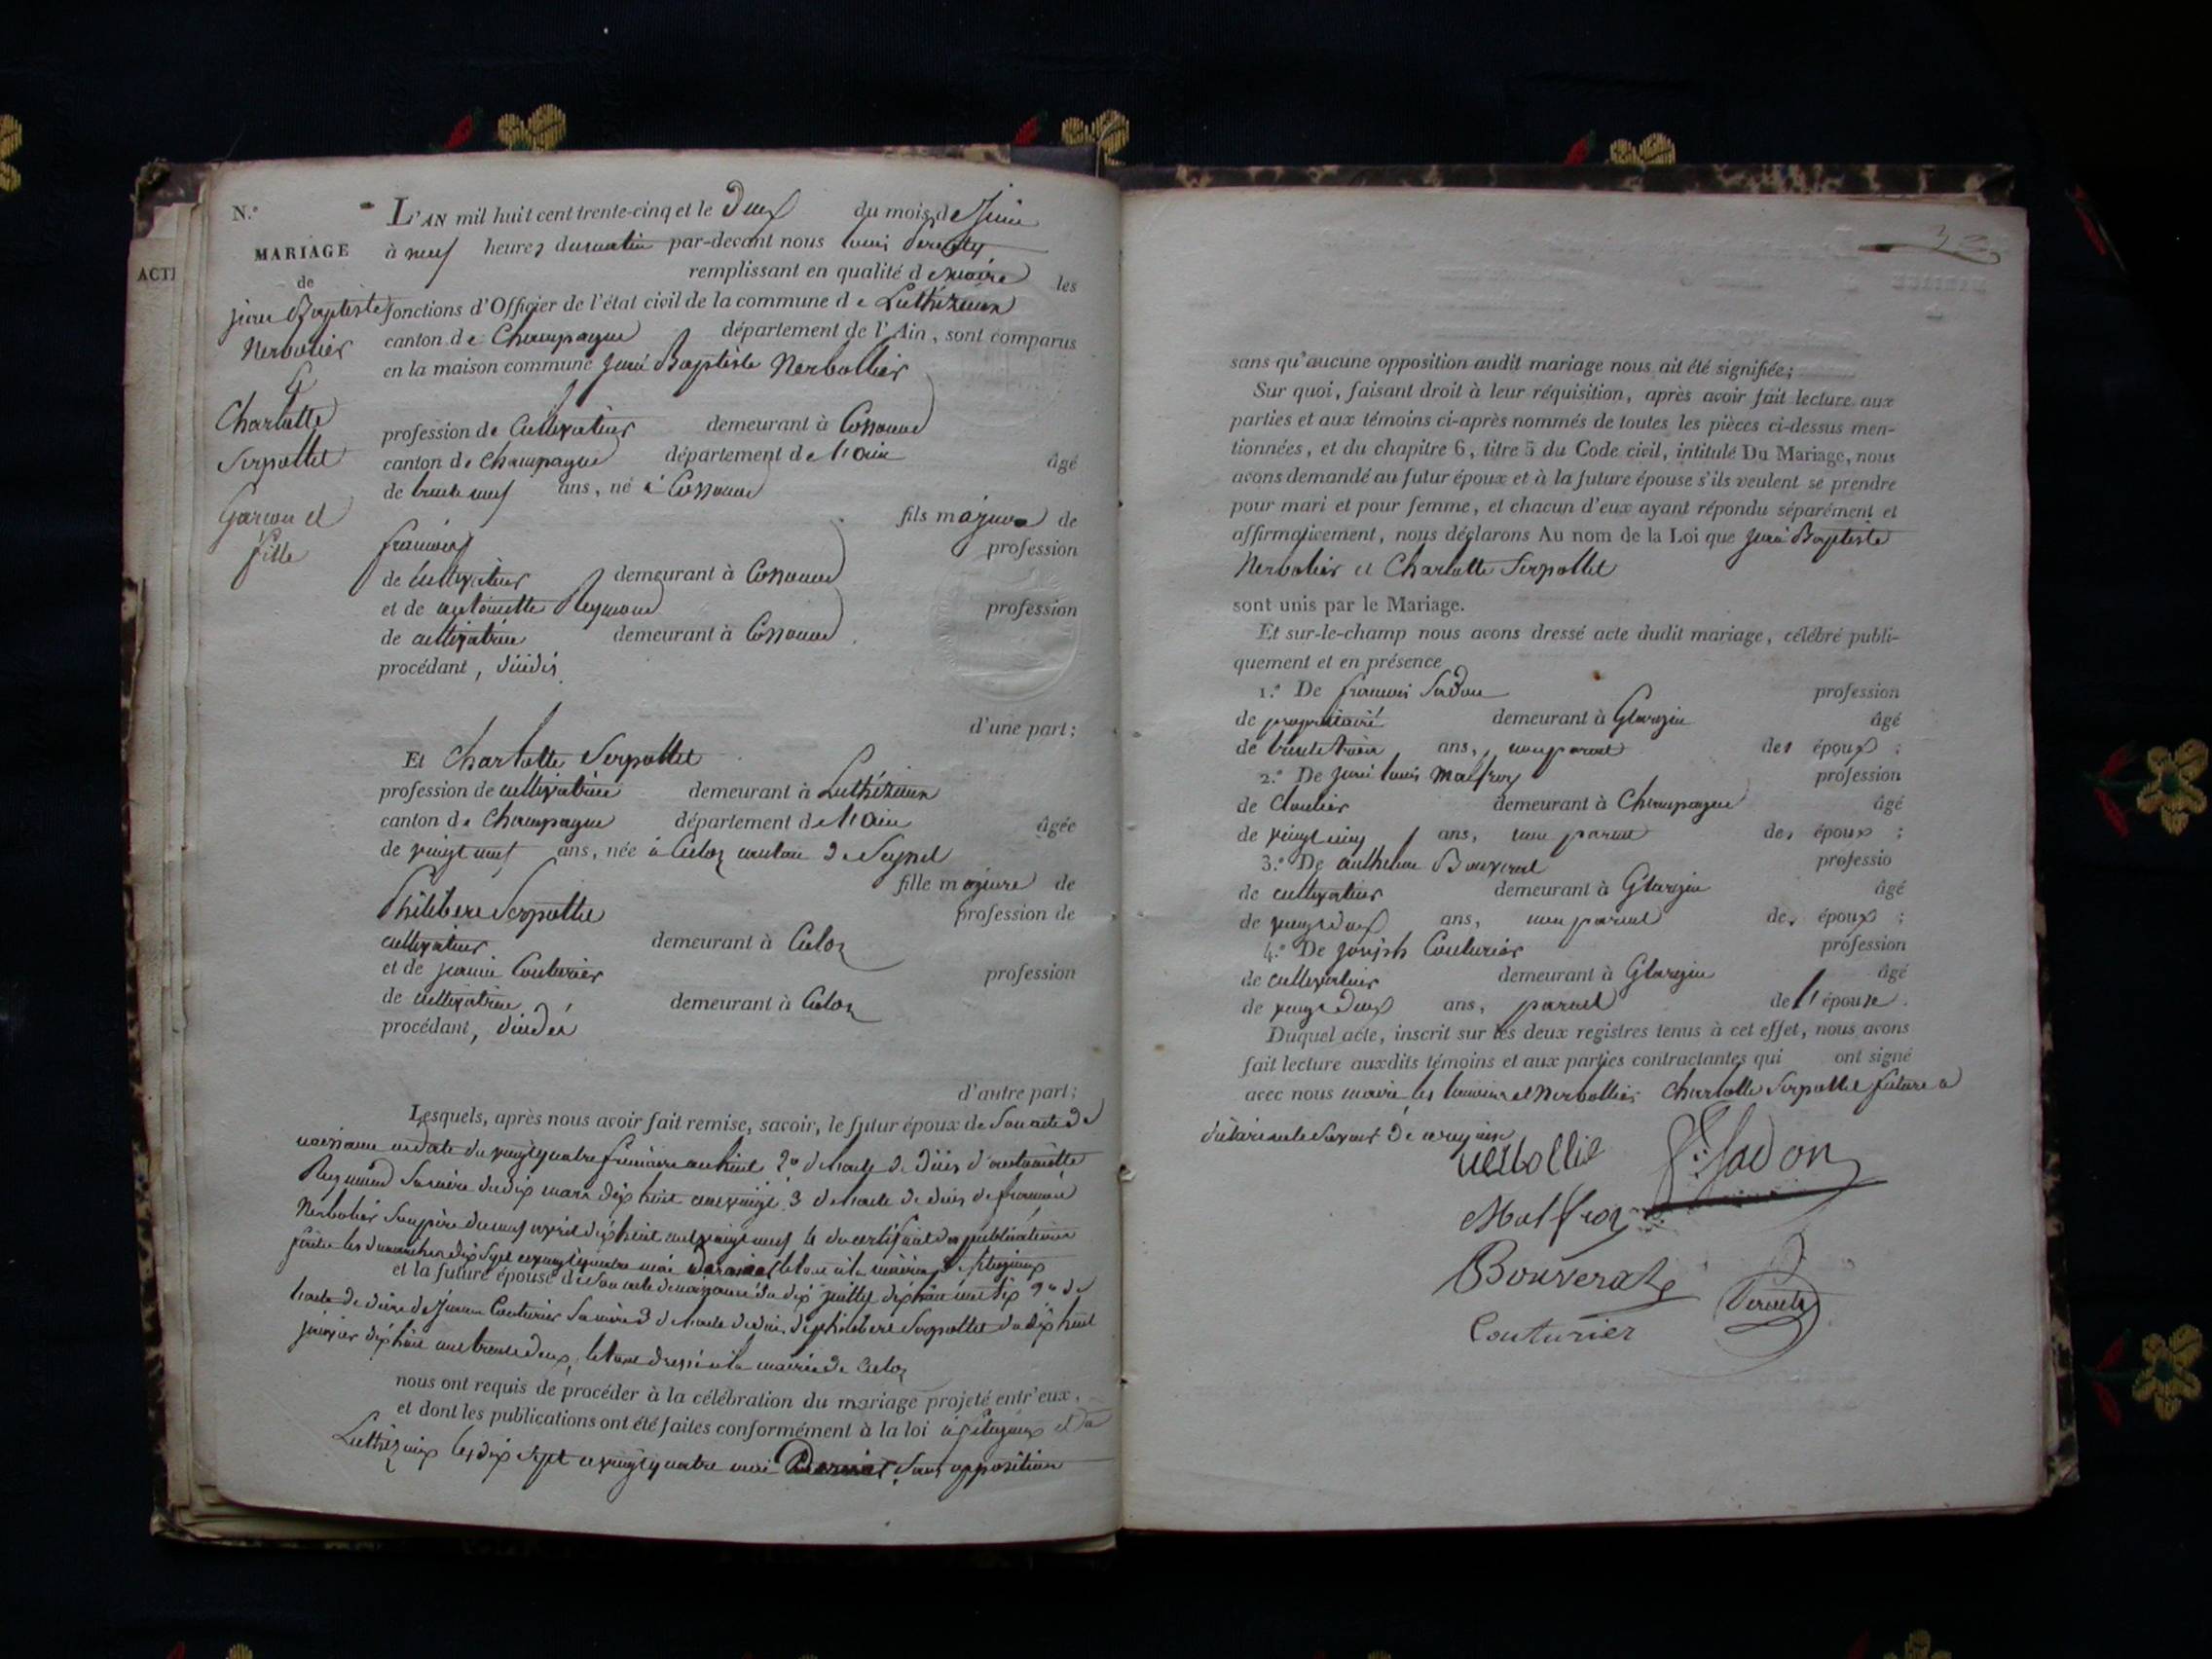 N.°
MARIAGE
de
jean Baptiste
Nerbolier
&
Charlotte
Serpollet
Garcon et
fille
ACTI
L'AN mil huit cent trente-cinq et le deux du mois de Juin
à neuf heures du matin par-devant nous louis
remplissant en qualité de maire les
fonctions d'Officier de l'état civil de la commune de Luthézieux
canton de Champagne département de l'Ain, sont comparus
en la maison commune jean Baptiste Nerbollier
profession de Cultivateur demeurant à Cossonod
canton de Champagne département de l'ain âgé
de trente neuf ans, né à Cossonod
fils majeur de
francois profession
de cultivateur demeurant à Cossonod
et de antoinette Reymond profession
de cultivatrice demeurant à Cossonod
procédant, décédés
d'une part;
Et Charlotte Serpollet
profession de cultivatrice demeurant à Luthézieux
canton de Champagne département de l'ain âgée
de vingt neuf ans, née à Culoz canton de Seyssel
fille majeure de
Philibert Serpollet profession de
cultivateur demeurant à Culoz
et de jeanne Couturier profession
de cultivatrice demeurant à Culoz
procédant, décédés
d'autre part;
Lesquels, après nous avoir fait remise, savoir, le futur époux de Son acte de
naissance en date du vingt quatre frimaire an huit 2° de l'acte de décès d'antoinette
Reymond Sa mère du dix mars dix huit cent vingt 3 de l'acte de décès de francois
Nerbolier Son père du neuf avril dix huit cent vingt neuf 4 du certificat des publications
faites les dimanches dix Sept et vingt quatre mai dernier le tout à la mairie de
et la future épouse de Son acte de naissance du dix juillet dix huit cent Six 2° de
l'acte de décès de Jeanne Couturier Sa mère 3 de l'acte de décès de philibert Serpollet du dix huit
janvier dix huit cent trente deux, le tout dressé à la mairie de Culoz
nous ont requis de procéder à la célébration du mariage projeté entr'eux,
et dont les publications ont été faites conformément à la loi à et à
Luthézieux les dix Sept et vingt quatre mai Dernier, Sans opposition
sans qu'aucune opposition audit mariage nous ait été signifiée;
Sur quoi, faisant droit à leur réquisition, après avoir fait lecture aux
parties et aux témoins ci-après nommés de toutes les pièces ci-dessus men-
tionnées, et du chapitre 6, titre 5 du Code civil, intitulé Du Mariage, nous
avons demandé au futur époux et à la future épouse s'ils veulent se prendre
pour mari et pour femme, et chacun d'eux ayant répondu séparément et
affirmativement, nous déclarons Au nom de la Loi que jean Baptiste
Nerbolier et Charlotte Serpollet
sont unis par le Mariage.
Et sur-le-champ nous avons dressé acte dudit mariage, célébré publi-
quement et en présence
1.° De francois Jadon profession
de propriétaire demeurant à Glargin âgé
de trente trois ans, non parent des époux;
2.° De jean louis Malfroy profession
de Cloutier demeurant à Champagne âgé
de vingt cinq ans, non parent des époux;
3.° De anthelme Bouverat professio
de cultivateur demeurant à Glargin âgé
de vingt deux ans, non parent des époux;
4.° De joseph Couturier profession
de cultivateur demeurant à Glargin âgé
de vingt deux ans, parent de l'épouse.
Duquel acte, inscrit sur les deux registres tenus à cet effet, nous avons
fait lecture auxdits témoins et aux parties contractantes qui ont signé
avec nous maire les témoins et Nerbollier Charlotte Serpollet future a
déclaré ne le Savoir de ce requise
Nerbollie F. Jadon
Malfroy
Bouverat
Couturier